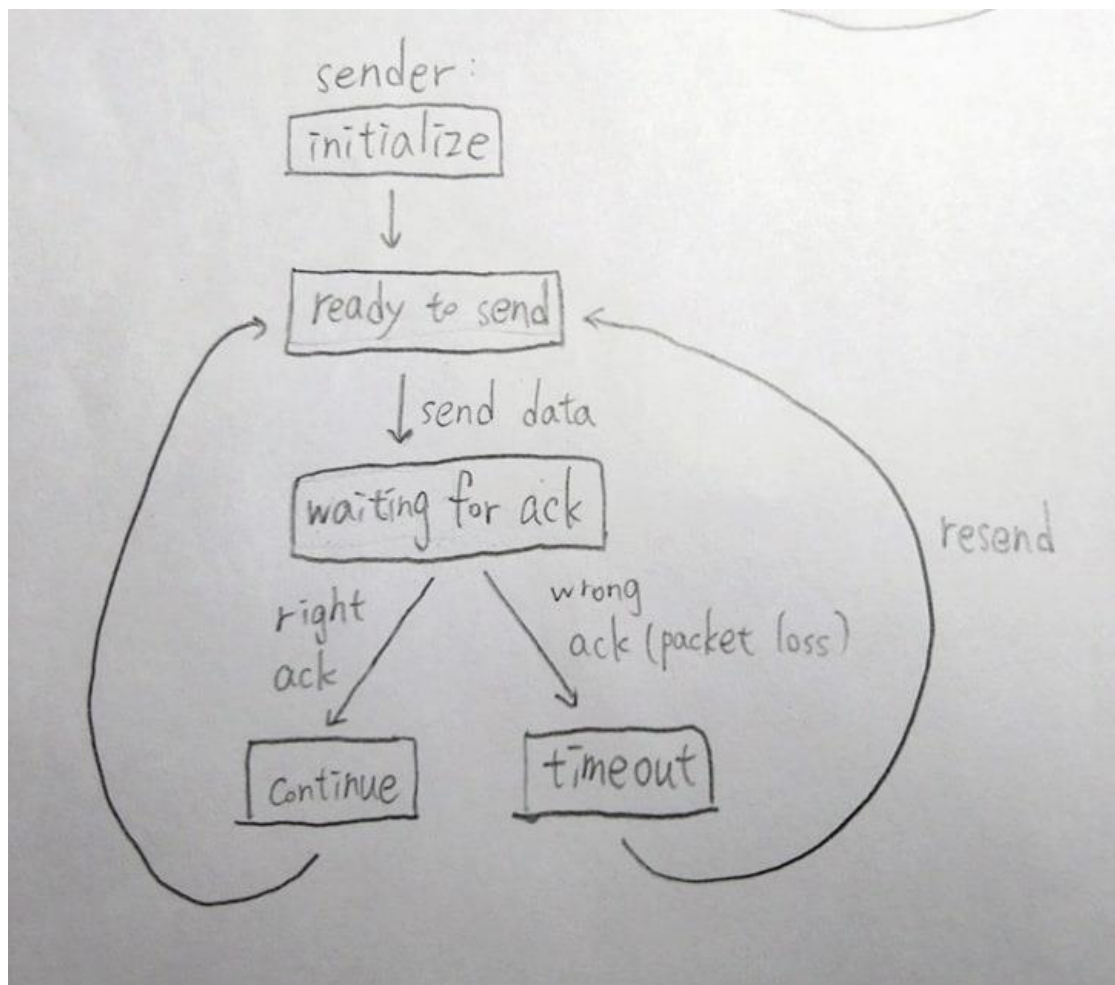 sender:
initialize
ready to send
send data
waiting for ack
right
ack
wrong
ack (packet loss)
resend
continue
timeout